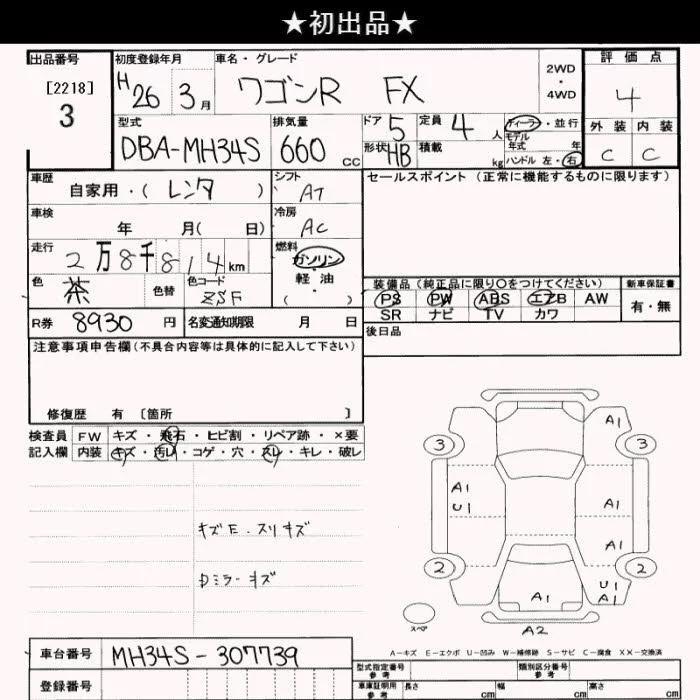 ★初出品★
出品番号
[2218]
3
初度登録年月
H 26 3月
車名・グレード
ワゴンR FX
2WD
・
4WD
評価点
4
外装 内装
C C
型式
DBA-MH34S
排気量
660 cc
ドア 5
定員 4 人
形状 HB
積載 kg
ディーラー・並行
モデル
年式 年
ハンドル 左・右
車歴
自家用・(レンタ)
シフト
AT
セールスポイント (正常に機能するものに限ります)
車検
年 月( 日)
冷房
AC
走行
2万8千814km
燃料
ガソリン
軽・油
( )
色
茶
色替
色コード
ZSF
装備品 (純正品に限り○をつけてください)
PS PW ABS エアB AW
SR ナビ TV カワ
新車保証書
有・無
R券 8930円
名変通知期限 月 日
後日品
注意事項申告欄(不具合内容等は具体的に記入して下さい)
修復歴 有 [箇所 ]
検査員
記入欄
FW キズ・飛石・ヒビ割・リペア跡・×要
内装 キズ・汚レ・コゲ・穴・スレ・キレ・破レ
キズE・スリキズ
Dミラーキズ
A1
3 3
A1
U1
A1
A1
2 2
U1
A1
A1
スペア
A2
A-キズ E-エクボ U-凹み W-補修跡 S-サビ C-腐食 XX-交換済
車台番号 MH34S-307739
登録番号
型式指定番号
参考
類別区分番号
参考
車庫証明用
参考
長さ cm
幅 cm
高さ cm